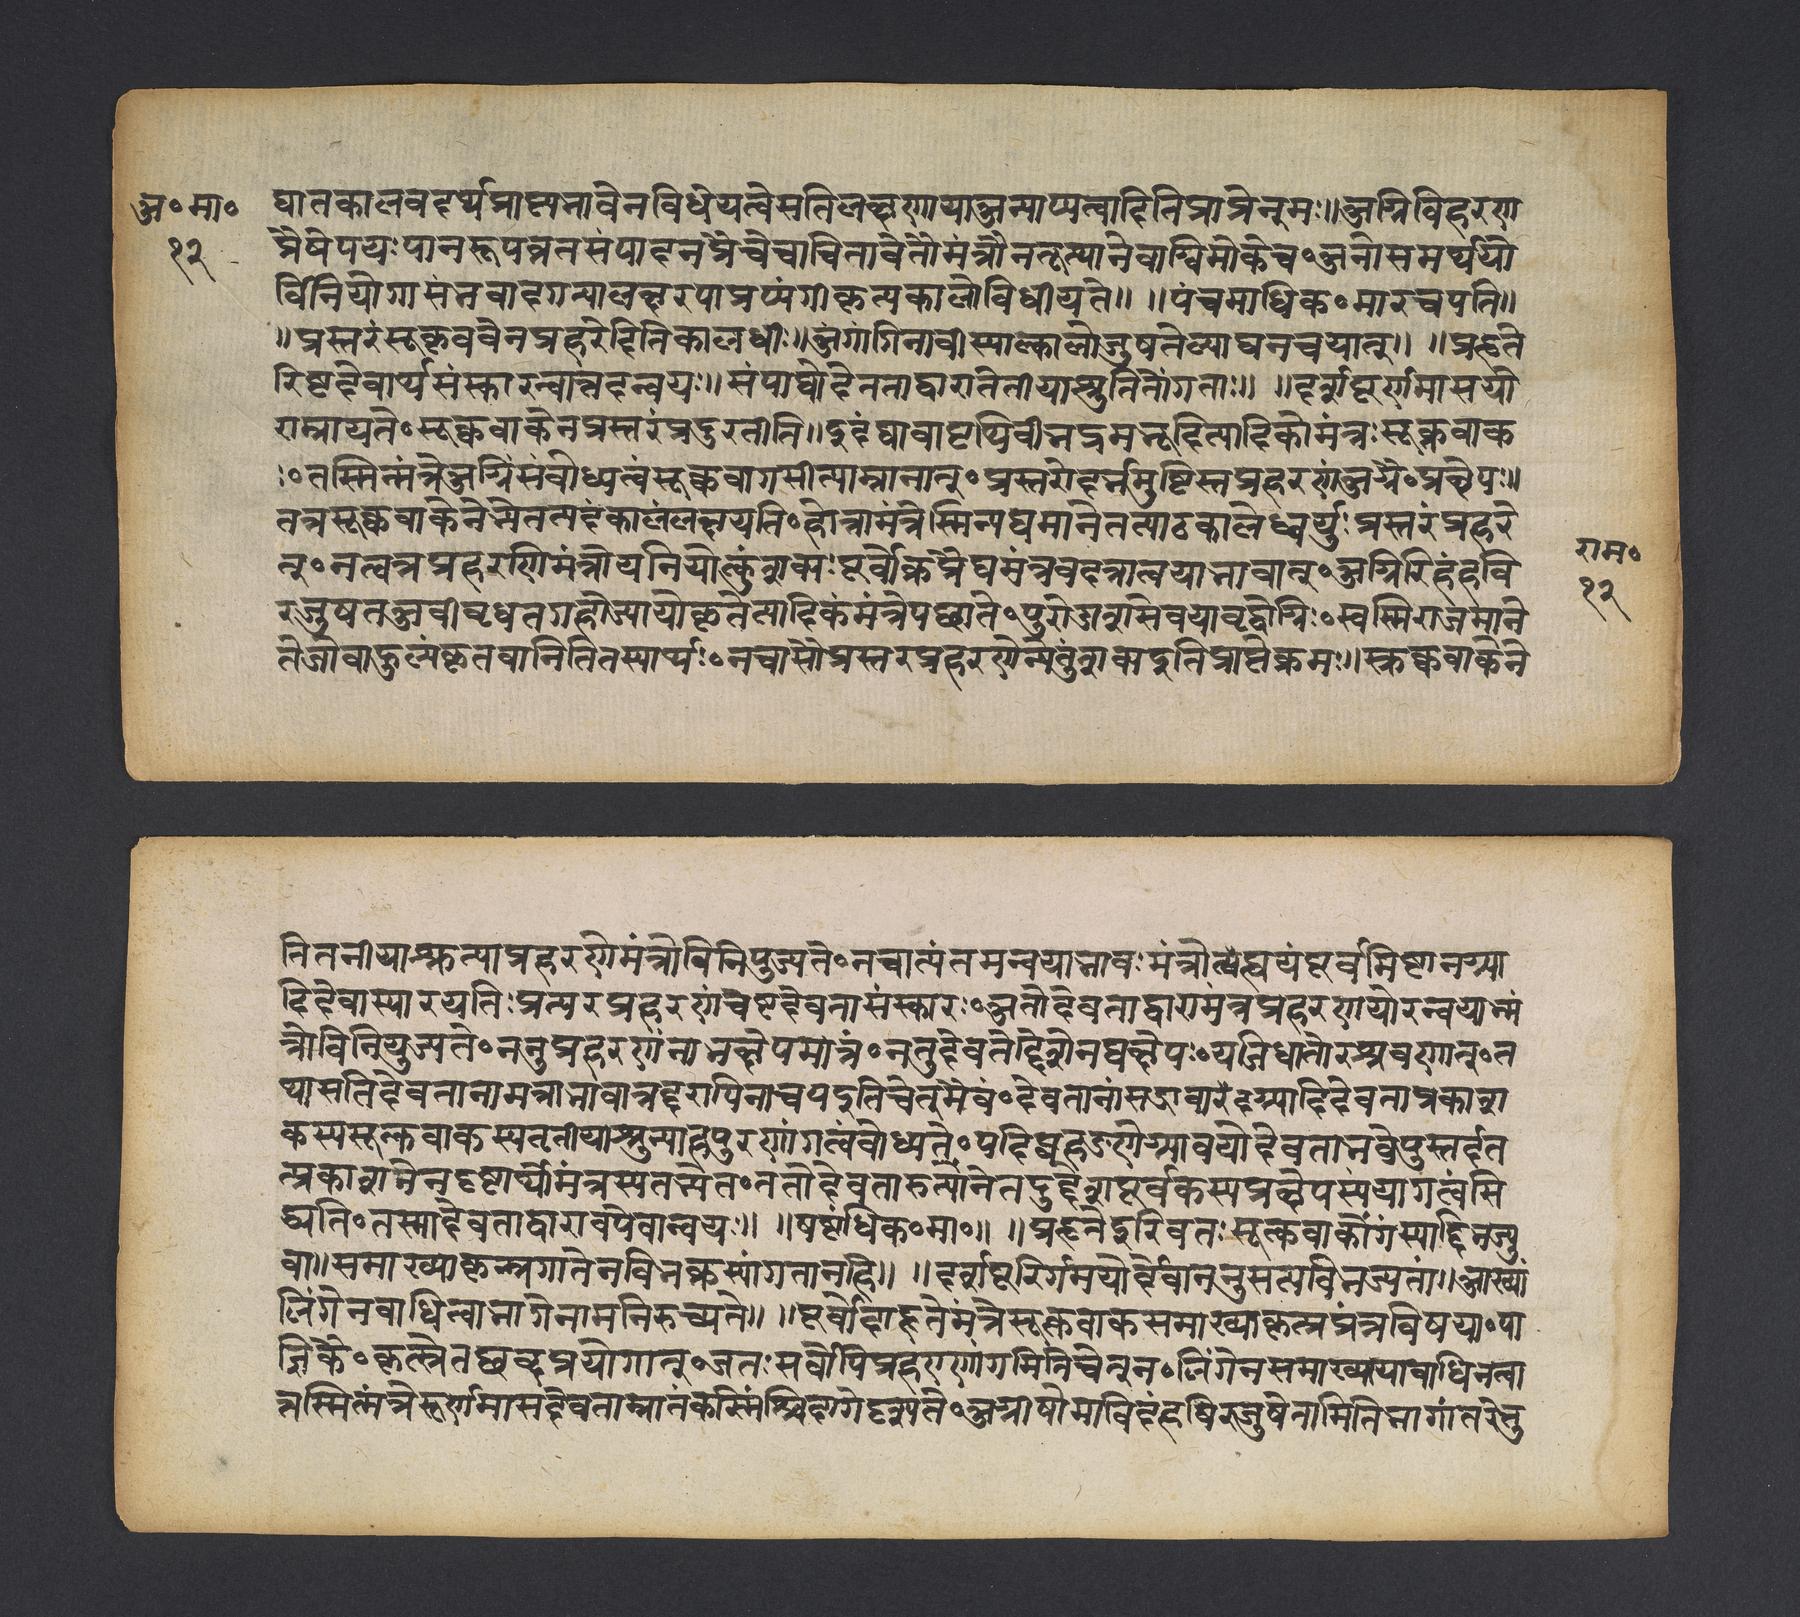 अ॰मा॰
१२
घातकालवदर्थप्राप्त्यभावेनविधेयत्वेसतिलक्षणायाअन्याय्यत्वादितिप्राप्तेब्रूमः॥अग्निविहरण
प्रैषेपयःपानरूपव्रतसंपादनप्रैषेचाचितावेतौमंत्रौनतूत्थानेवाग्विमोकेच॰अतोसमर्थयो
र्विनियोगासंभवादगत्यालक्षणयाप्यंगीकृत्यकालोविधीयते॥ ॥पंचमाधिक॰मारचयति॥
॥प्रस्तरंसूक्तवाकेनप्रहरेदितिकालधीः॥अंगांगिभावोस्यात्कालोजुषतेत्याद्यनन्वयात्॥ ॥प्रकृते
रिष्टदेवार्थसंस्कारत्वात्तदन्वयः॥संपाद्योदेवताद्वारातृतीयाश्रुतितोंगता॥ ॥दर्शपूर्णमासयो
राम्नायते॰सूक्तवाकेनप्रस्तरंप्रहरतीति॥इदंद्यावापृथिवीभद्रमभूदित्यादिकोमंत्रःसूक्तवाक
ः॰तस्मिन्मंत्रेअग्निंसंबोध्यत्वंसूक्तवागसीत्याम्नानात्॰प्रस्तरोदर्भमुष्टिस्तप्रहरणंअग्नौ॰प्रक्षेपः॥
तत्रसूक्तवाकेनेत्येतत्पदंकालंलक्षयति॰होत्रामंत्रेस्मिन्पठ्यमानेतत्पाठकालेध्वर्युःप्रस्तरंप्रहरे
त्॰नत्वत्रप्रहरणेमंत्रोयनियोक्तुंशक्यःपूर्वोक्तप्रैषमंत्रवदत्रान्वयाभावात्॰अग्निरिदंहवि
रजुषतअवीवृधतमहोज्यायोकृतेत्यादिकंमंत्रेपठ्यते॰पुरोडाशसेवयावृद्धोग्निः॰स्वस्मिन्यजमाने
तेजोबाहुल्यंकृतवानितितस्यार्थः॰नचासौप्रस्तरप्रहरणेन्वेतुंशक्यइतिप्राप्तेब्रूमः॥सूक्तवाकेने
राम॰
१२
तितृतीयाश्रुत्याप्रहरणेमंत्रोविनियुज्यते॰नचात्यंतमन्वयाभावःमंत्रोत्ह्ययंपूर्वमिष्टानग्न्या
दिदेवास्मारयति॰प्रस्तरप्रहरणंचेष्टदेवतासंस्कारः॰अतोदेवताद्वारामंत्रप्रहरणयोरन्वयान्मं
त्रोविनियुज्यते॰ननुप्रहरणंनामक्षेपमात्रं॰नतुदेवतोद्देशेनप्रक्षेपः॰यजिधातोरश्रवणात्॰त
थासतिदेवतानामत्राभावात्तद्द्वारापिनान्वयइतिचेत्मैवं॰देवतानांसद्भावात्॰अग्न्यादिदेवताप्रकाश
कस्यसूक्तवाकस्यतृतीयाश्रुत्याप्रहरणांगत्वंबोध्यते॰यदिप्रहरणेग्न्यादयोदेवताभवेयुस्तर्हित
त्प्रकाशनेनदृष्टार्थोमंत्रस्यलभ्येत॰ततोदेवताकल्पनेतदुद्देशपूर्वकस्यप्रक्षेपस्ययागत्वंसि
द्ध्यति॰तस्माद्देवताद्वाराचयेवान्वयः॥ ॥षष्ठाधिक॰मा॰॥ ॥प्रहृतेरिवतःसूक्तवाकोंगंस्याद्विभज्यु
वा॥समाख्याकृत्स्नगातेनविभक्तस्यांगतानहि॥ ॥दर्शपूर्णिमयोर्देवाननुसृत्यविभज्यतां॥आख्यां
लिंगेनबाधित्वाभागेनामनिरुच्यते॥ ॥पूर्वोदाहृतेमंत्रेसूक्तवाकसमाख्याकृत्स्नमंत्रविषया॰या
ज्ञिकैः॰कृत्स्नेतच्छब्दप्रयोगात्॰अतःसर्वोपिप्रहरणांगमितिचेत्न॰लिंगेनसमाख्यायाबाधितत्वा
त्तस्मिन्मंत्रेपूर्णमासदेवताम्नातंकस्मिंश्चिद्भागेदृश्यते॰अग्नीषोमाविदंहविरजुषेतामितिभागांतरेतु